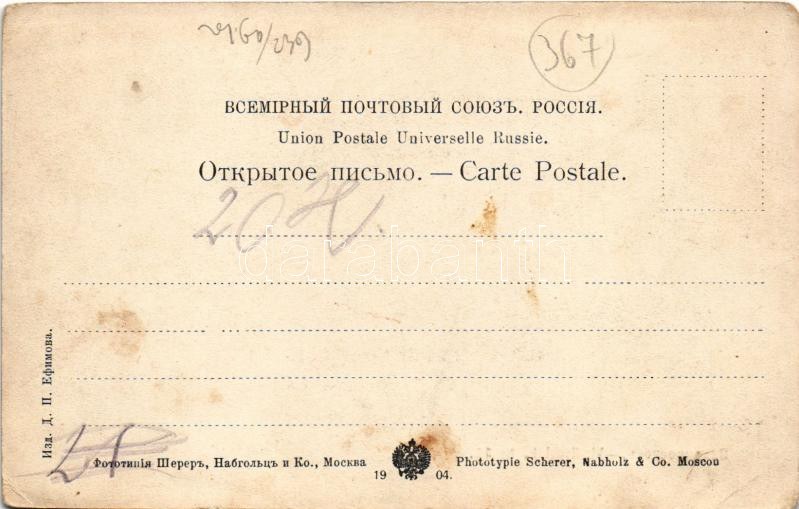 367
ВСЕМІРНЫЙ ПОЧТОВЫЙ СОЮЗЪ. РОССІЯ.
Union Postale Universelle Russie.
Открытое письмо. — Carte Postale.
20
darabanth
Изд. Д. П. Ефимова.
Фототипія Шереръ, Набгольцъ и Ко., Москва
Phototypie Scherer, Nabholz & Co. Moscou
19 04.